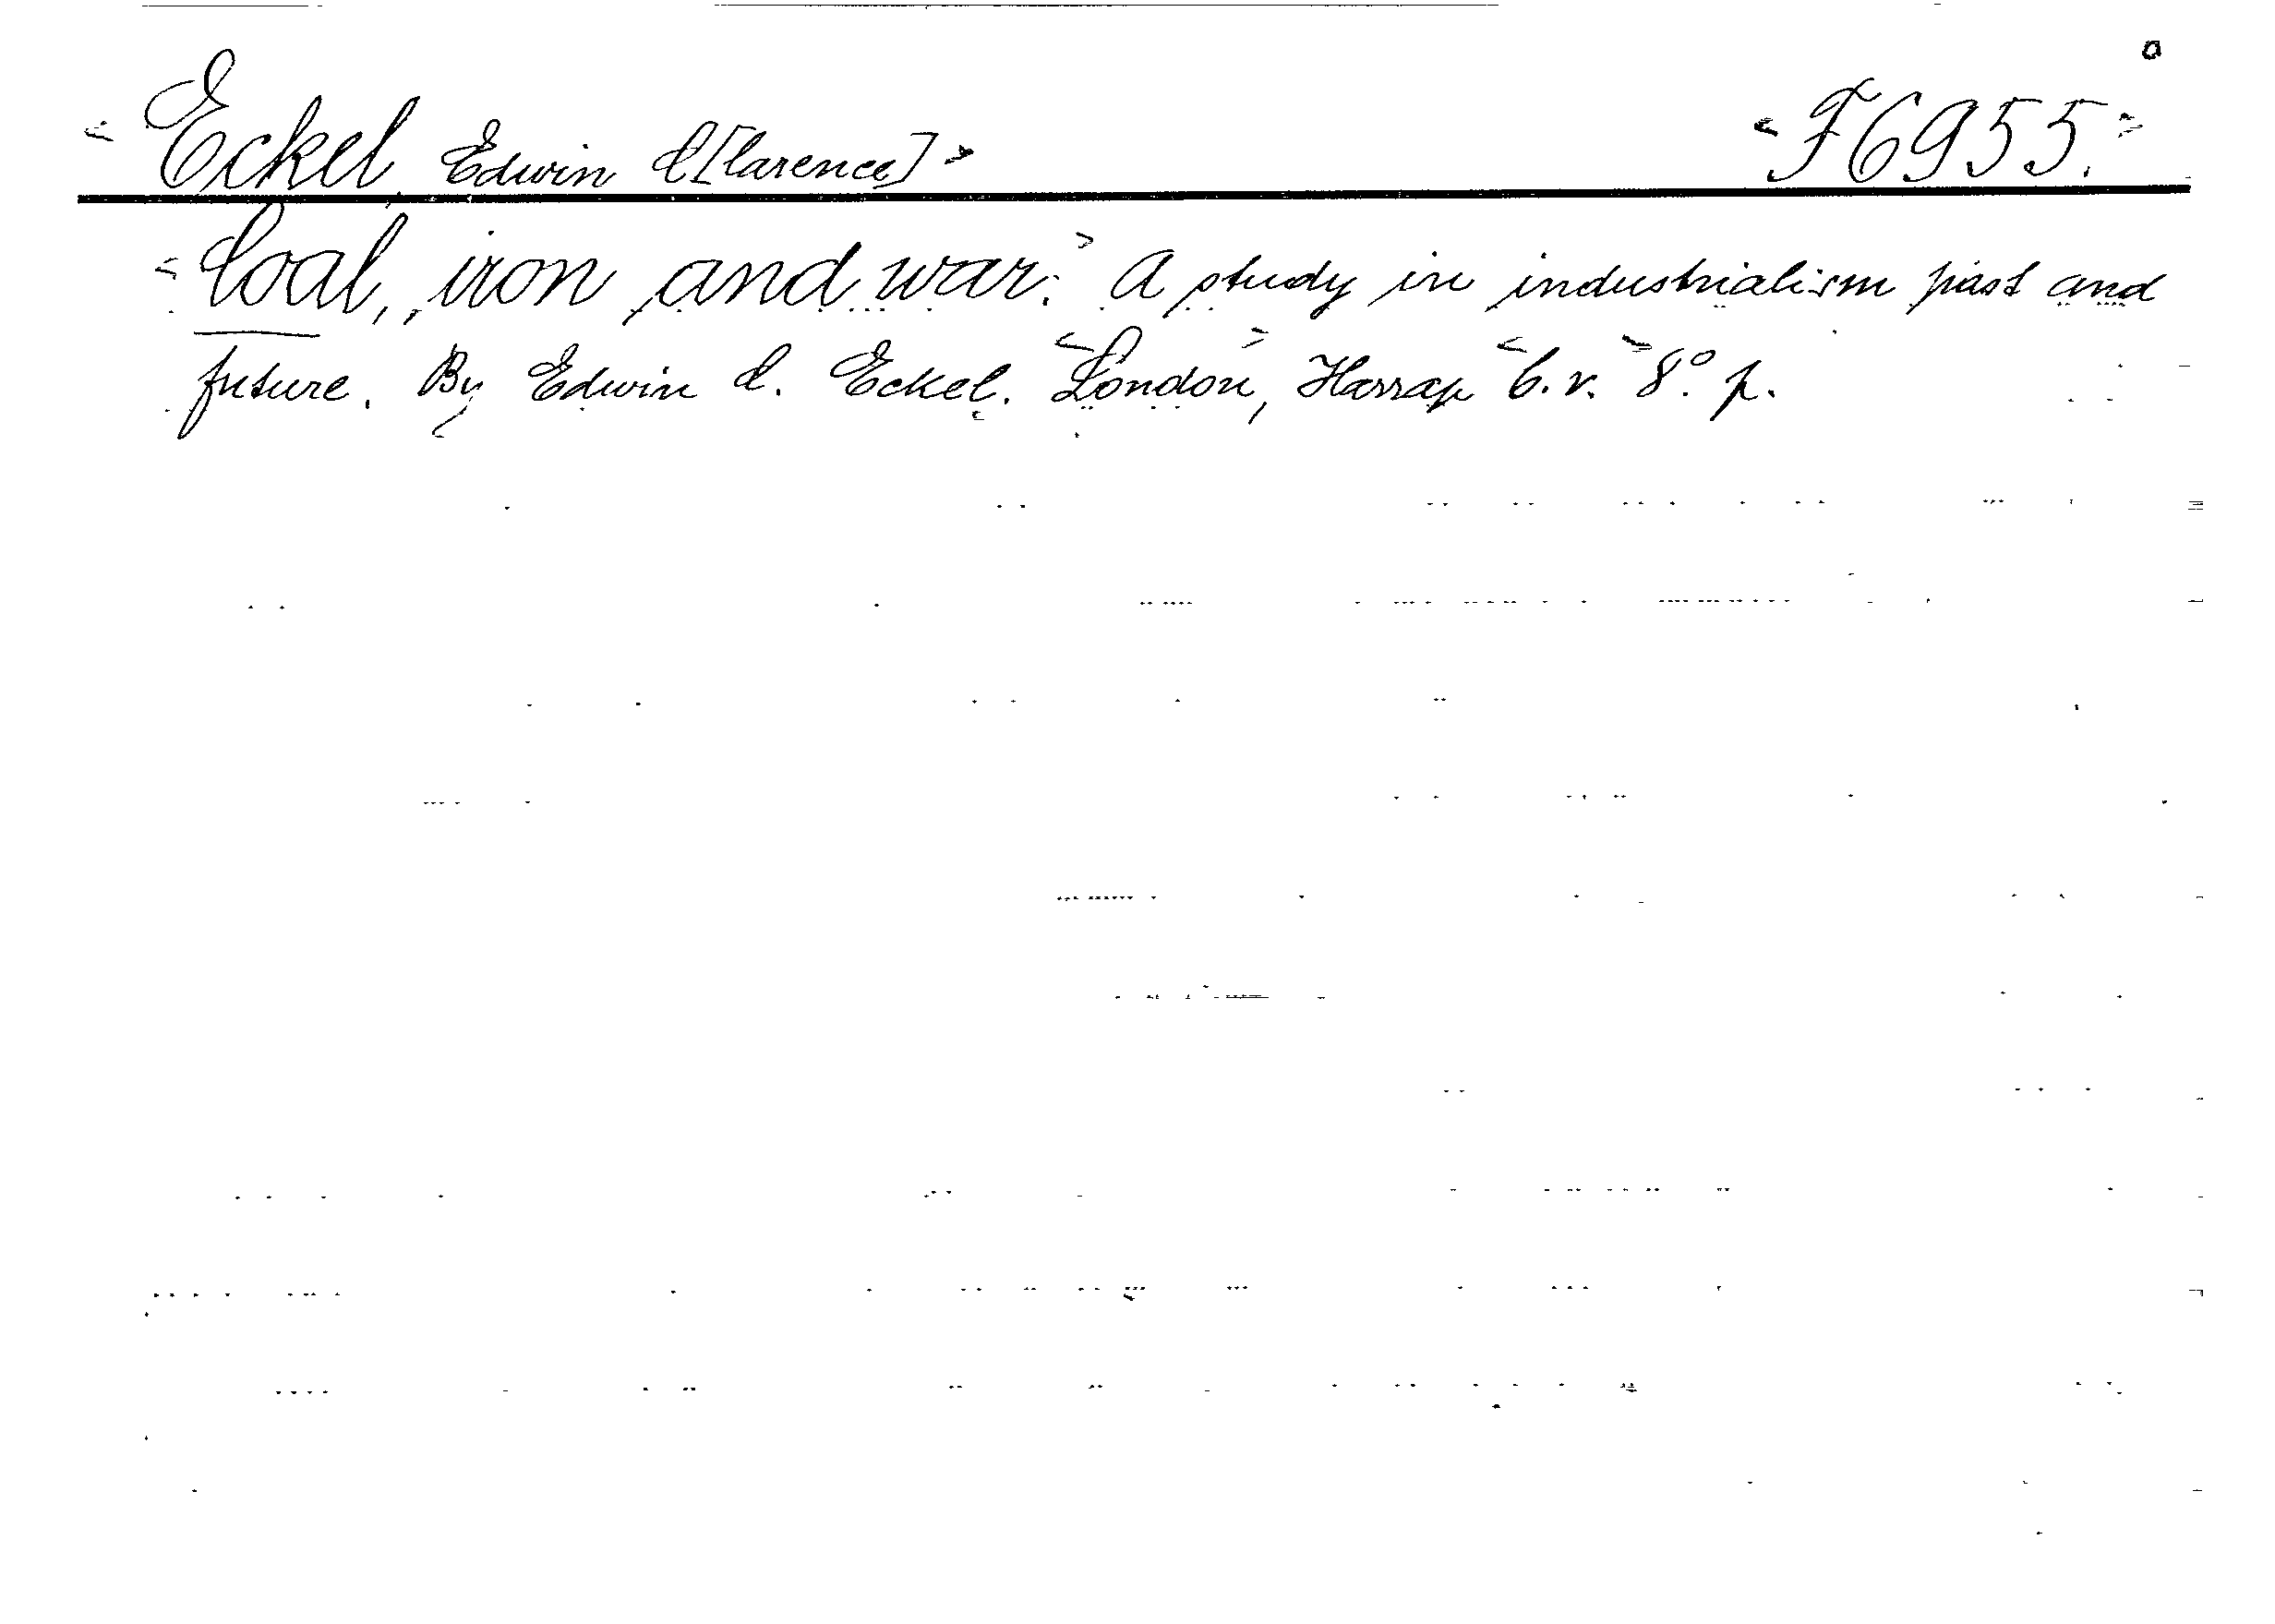 <Eckel, Edwin C[larence]> <F6955.>
<Coal, iron and war.> A study in industrialism past and
future. By Edwin C. Eckel. <London>, Harrap <b.r.> 8°. p.